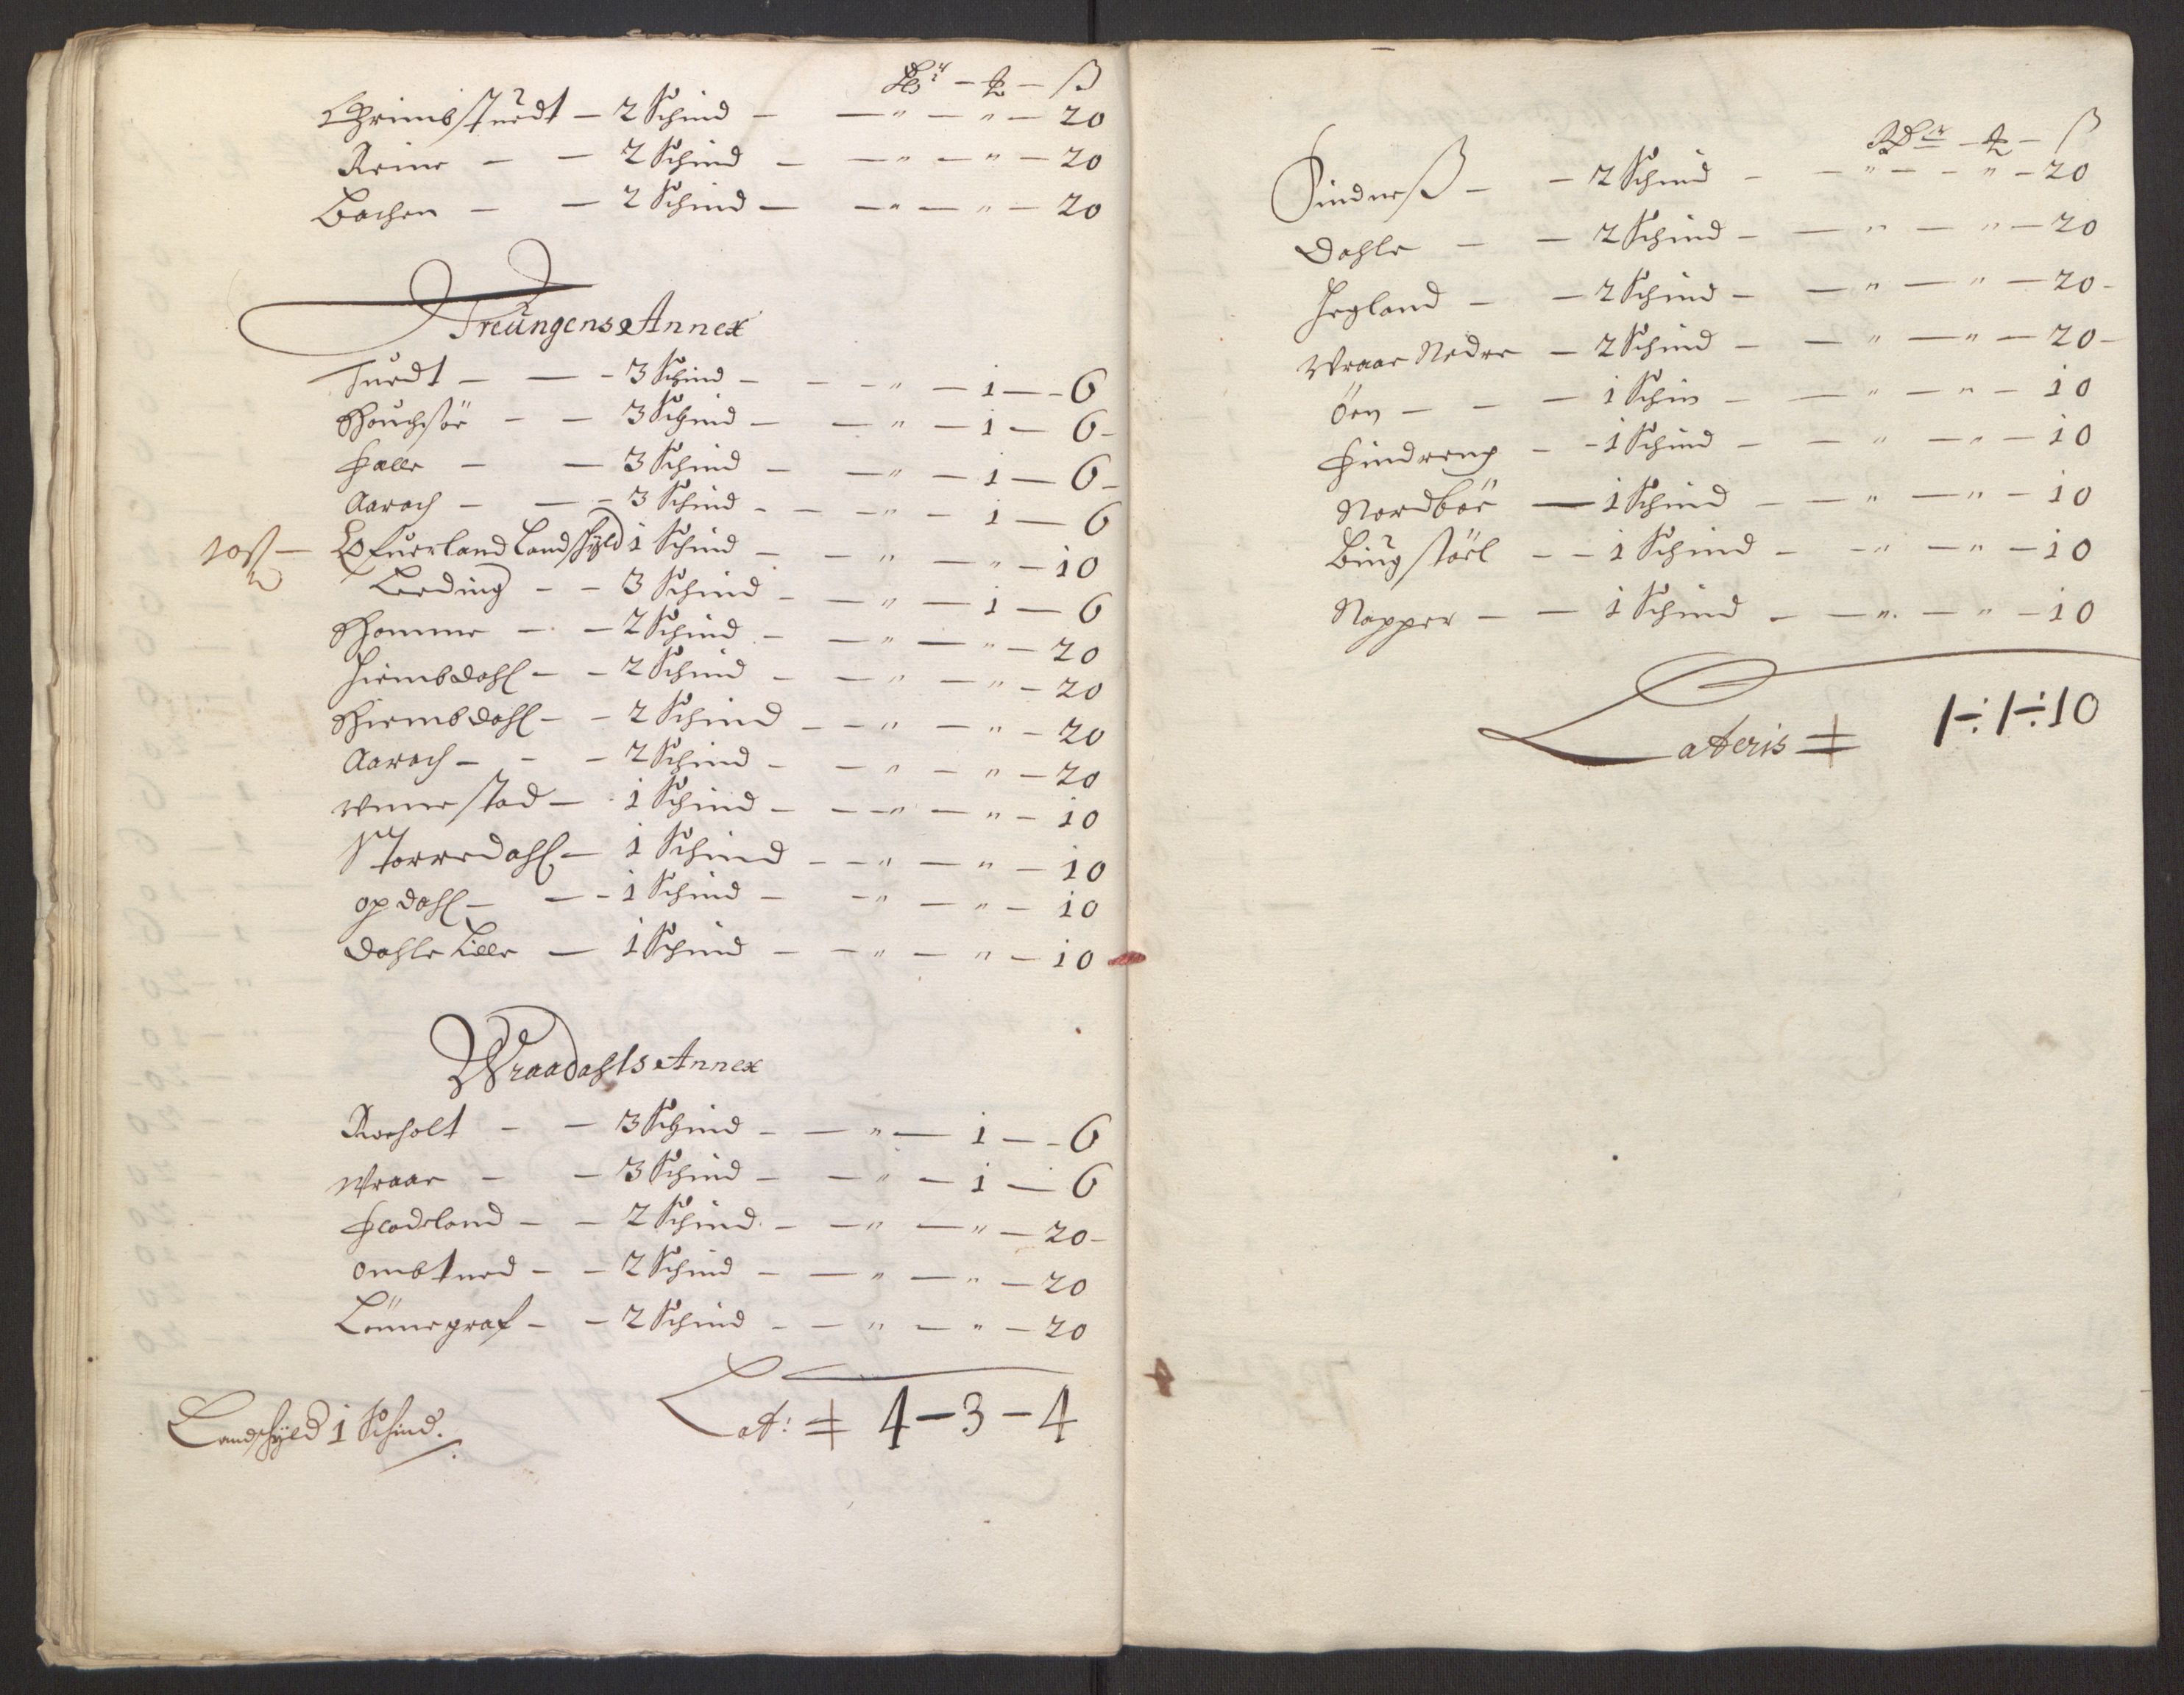 Rdr — — ß
Grimbstuedt — 2 Schind — — " — " — 20
Reine — — 2 Schind — — " — " — 20
Bachen — — 2 Schind — — " — " — 20
Treungens Annex
Tuedt — — - 3 Schind — — " — 1 — 6
Houchsör — — 3 Schind — — " — 1 — 6
Falle — — 3 Schind — — " — 1 — 6
Aarach — — - 3 Schind — — " — 1 — 6
10 ß — Ofuerland Landschyld 1 Schind — — " — " — 10
Leeding — — 3 Schind — — " — 1 — 6
Homme — — 2 Schind — — " — " — 20
Hiembdahl — — 2 Schind — — " — " — 20
Hiembdahl — — 2 Schind — — " — " — 20
Aarach — — — 2 Schind — — " — " — 20
Vennestad — 1 Schind — — " — " — 10
Storredahl — 1 Schind — — " — " — 10
opdahl — — - 1 Schind — — " — " — 10
Dahle Lille — 1 Schind — — " — " — 10
Wraadahls Annex
Roeholt — — 3 Schind — — " — 1 — 6
Wraae — — 3 Schind — — " — 1 — 6
Fladeland — — 2 Schind — — " — " — 20
ombtued — — 2 Schind — — " — " — 20
Lönnegraf — — 2 Schind — — " — " — 20
Lat: 4 — 3 — 4
Landschyld 1 Schind.
Rdr — — ß
— — 2 Schind — — " — " — 20
Dahle — — 2 Schind — — " — " — 20
Hegland — — 2 Schind — — " — " — 20
Wraae Nedre — 2 Schind — — " — " — 20
Öen — — — 1 Schin — — " — " — 10
Findreng — — 1 Schind — — " — " — 10
Nordböe — 1 Schind — — " — " — 10
Bingstöel — — 1 Schind — — " — " — 10
Napper — — 1 Schind — — " — " — 10
Lateris 1 ÷ 1 ÷ 10